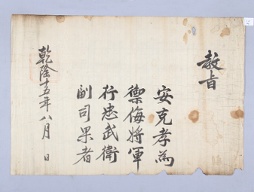 教旨
安克孝為
禦侮將軍
行忠武衛
副司果者
乾隆十五年八月 日